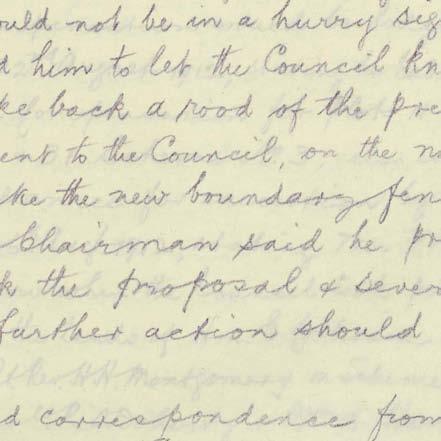 ould not be in a hurry sig
d him to let the Council kn
ke back a rood of the pre
ent to the Council, on the n
ke the new boundary fen
Chairman said he pr
k the proposal & sever
further action should
H. H. Montgomery
d correspondence from